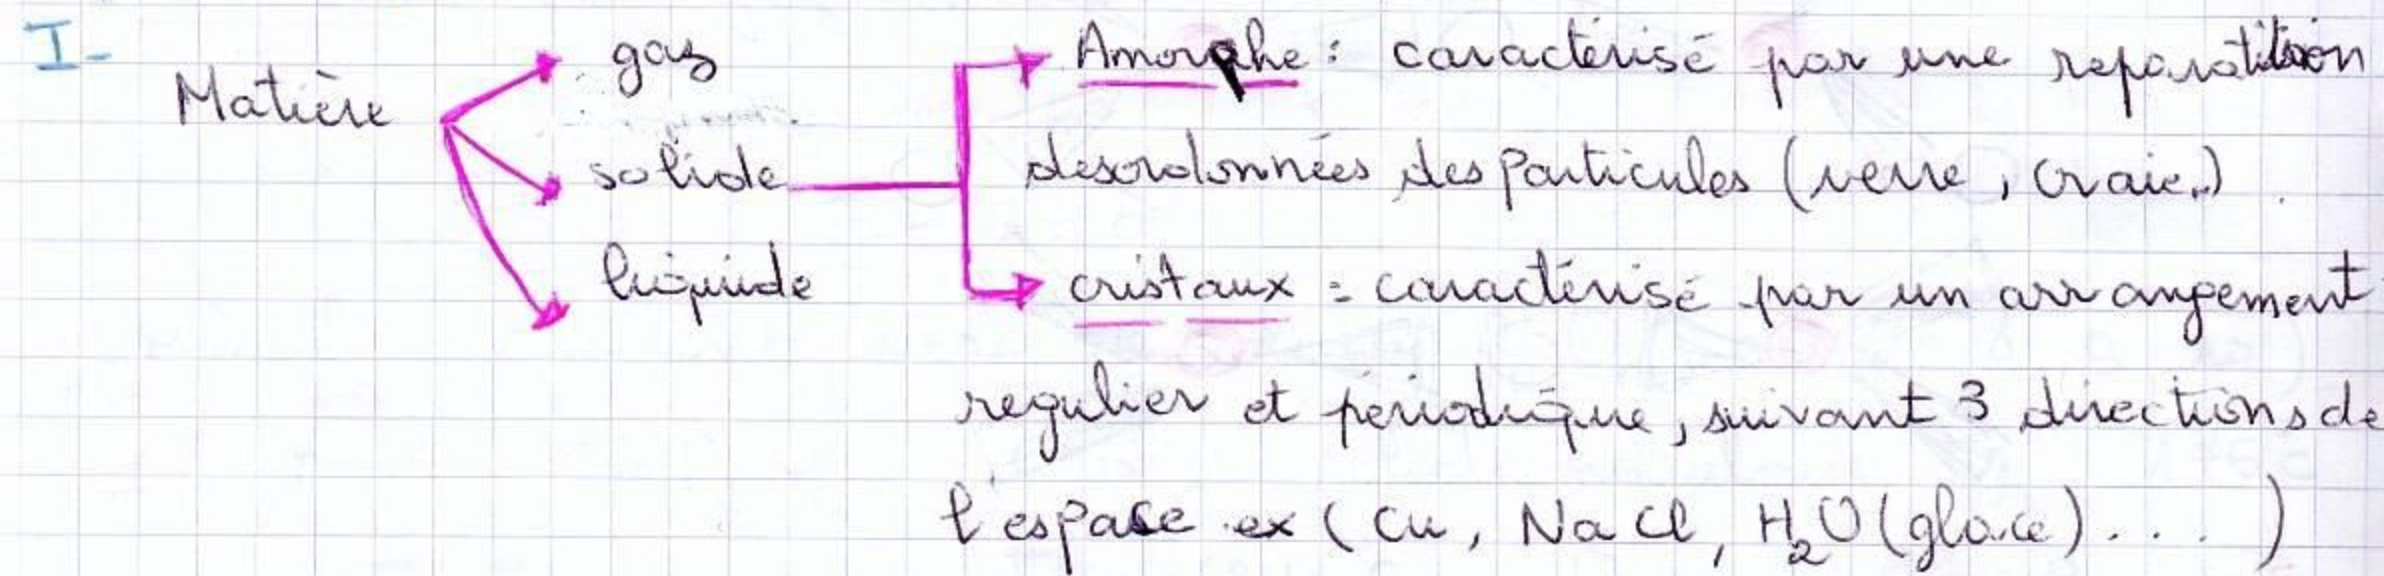 I-
Matière
gaz
solide
liquide
Amorphe : caractérisé par une reparatition
desordonnées des particules (verre, craie..)
cristaux : caractérisé par un arrangement
regulier et périodique, suivant 3 directions de
l'espace ex ( Cu, NaCl, H₂O (glace) . . . )